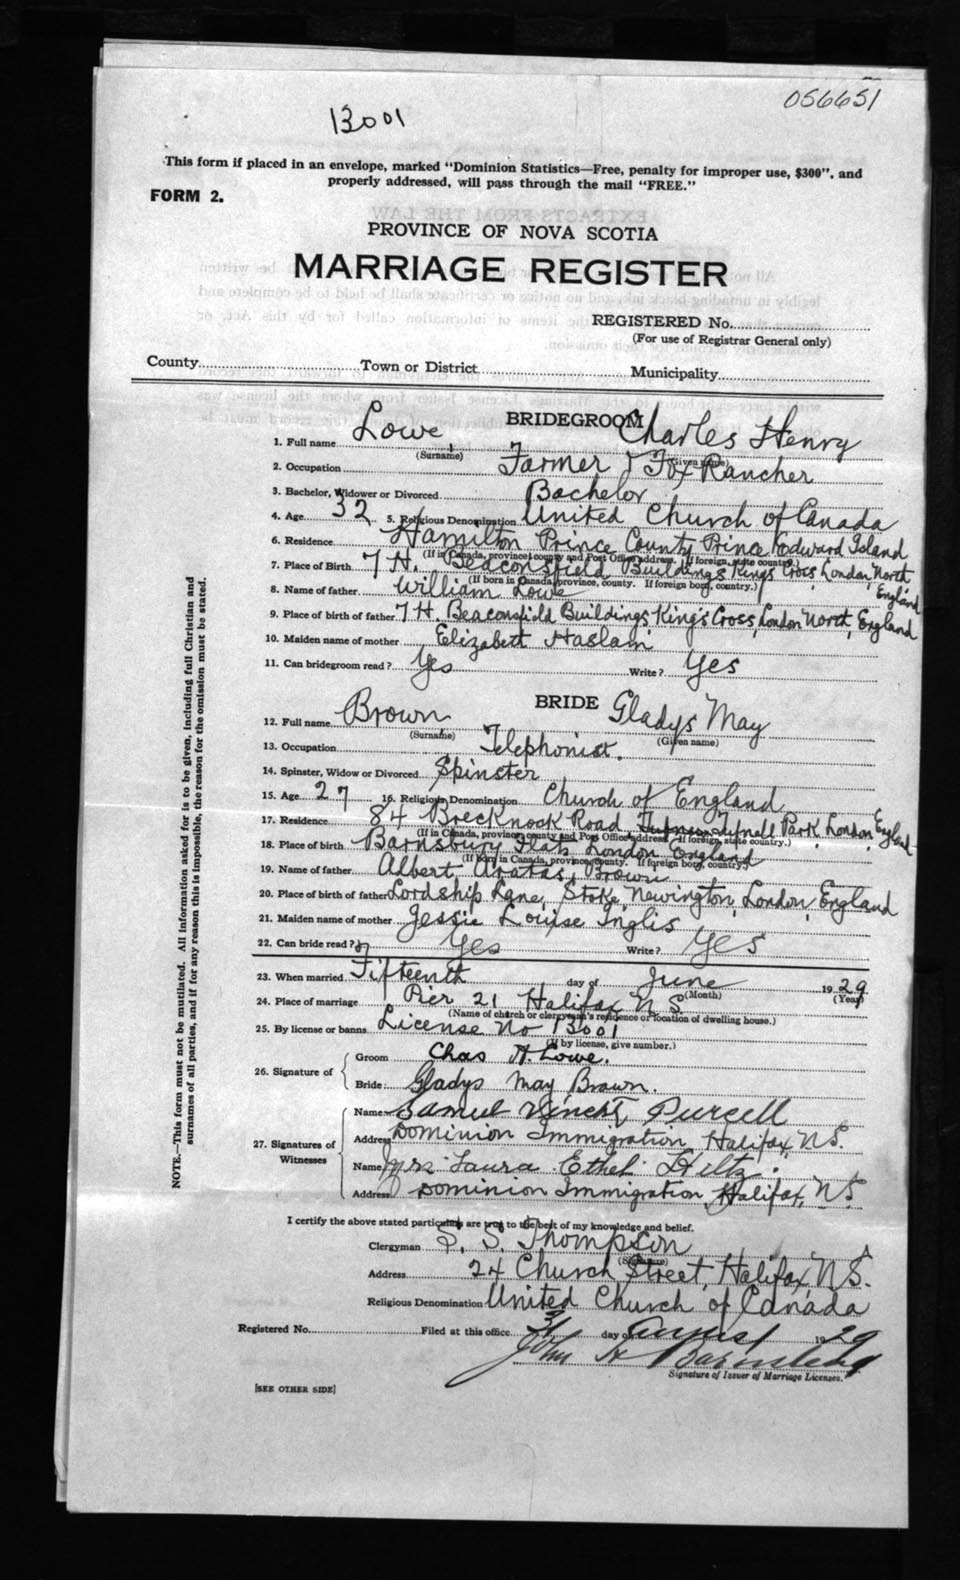 056651
13001
This form if placed in an envelope, marked "Dominion Statistics—Free, penalty for improper use, $300", and
properly addressed, will pass through the mail "FREE."
FORM 2.
PROVINCE OF NOVA SCOTIA
MARRIAGE REGISTER
REGISTERED No.
(For use of Registrar General only)
County Town or District Municipality
BRIDEGROOM
1. Full name Lowe Charles Henry
(Surname) (Given name)
2. Occupation Farmer & Fox Rancher
3. Bachelor, Widower or Divorced Bachelor
4. Age 32 5. Religious Denomination United Church of Canada
6. Residence Hamilton Prince County Prince Edward Island
(If in Canada, province, county and Post Office address. If foreign, state country.)
7. Place of Birth 7 H. Beaconsfield Buildings Kings Cross London North England
(If born in Canada, province, county. If foreign born, country.)
8. Name of father William Lowe
9. Place of birth of father 7 H. Beaconsfield Buildings King's Cross, London North, England
10. Maiden name of mother Elizabeth Haslam
11. Can bridegroom read? Yes Write? Yes
BRIDE
12. Full name Brown Gladys May
(Surname) (Given name)
13. Occupation Telephonist.
14. Spinster, Widow or Divorced Spinster
15. Age 27 16. Religious Denomination Church of England
17. Residence 84 Brecknock Road Tufnall Park London England
(If in Canada, province, county and Post Office address. If foreign, state country.)
18. Place of birth Barnsbury Flats London England
(If born in Canada, province, county. If foreign born, country.)
19. Name of father Albert Brown
20. Place of birth of father Lordship Lane, Stoke Newington, London, England
21. Maiden name of mother Jessie Louise Inglis
22. Can bride read? Yes Write? Yes
23. When married Fifteenth day of June 1929
(Month) (Year)
24. Place of marriage Pier 21 Halifax N S
(Name of church or clergyman's residence or location of dwelling house.)
25. By license or banns License No 13001
(If by license, give number.)
26. Signature of Groom Chas H Lowe.
Bride: Gladys May Brown.
27. Signatures of Witnesses
Name Samuel Vincent Purcell
Address Dominion Immigration, Halifax, N.S.
Name Mrs Laura Ethel Hiltz.
Address Dominion Immigration, Halifax, N.S.
I certify the above stated particulars are true to the best of my knowledge and belief.
Clergyman S. S. Thompson
(Signature)
Address 24 Church Street, Halifax, N.S.
Religious Denomination United Church of Canada
Registered No. Filed at this office 31 day of August 1929
John H
Signature of Issuer of Marriage Licenses.
[SEE OTHER SIDE]
NOTE.—This form must not be mutilated. All information asked for is to be given, including full Christian and
surnames of all parties, and if for any reason this is impossible, the reason for the omission must be stated.